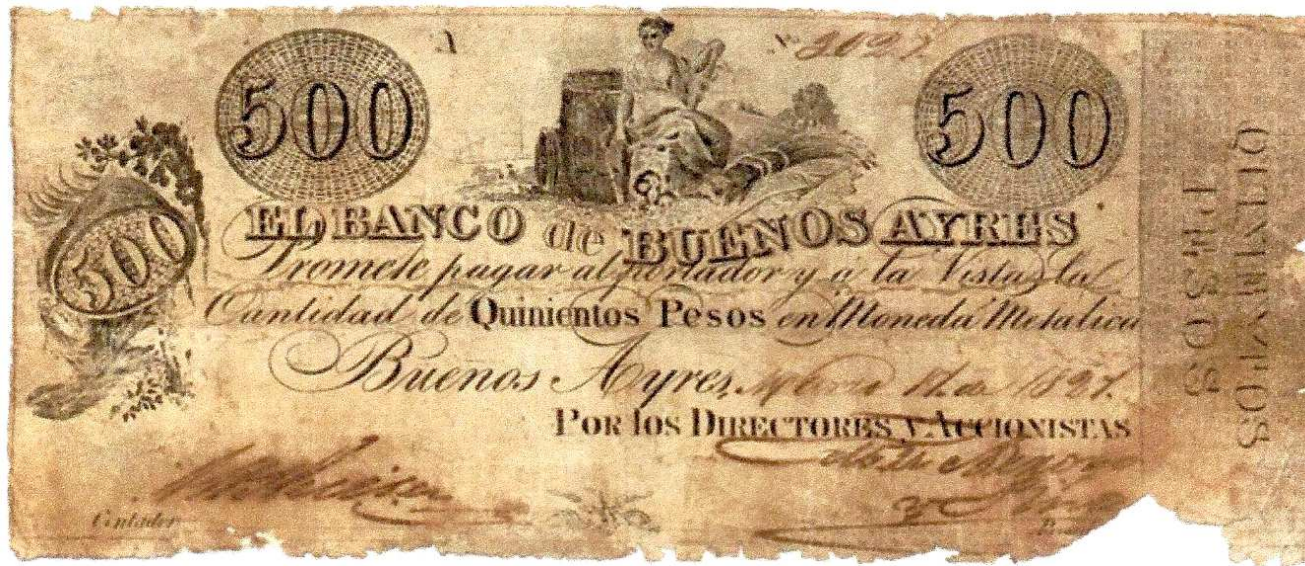 A
500
500
500
EL BANCO de BUENOS AYRES
Promete pagar al portador y a la Vista la
Cantidad de Quinientos Pesos en Moneda Metalica
Buenos Ayres, 1827.
POR los DIRECTORES Y ACCIONISTAS
Contador
QUINIENTOS
PESOS